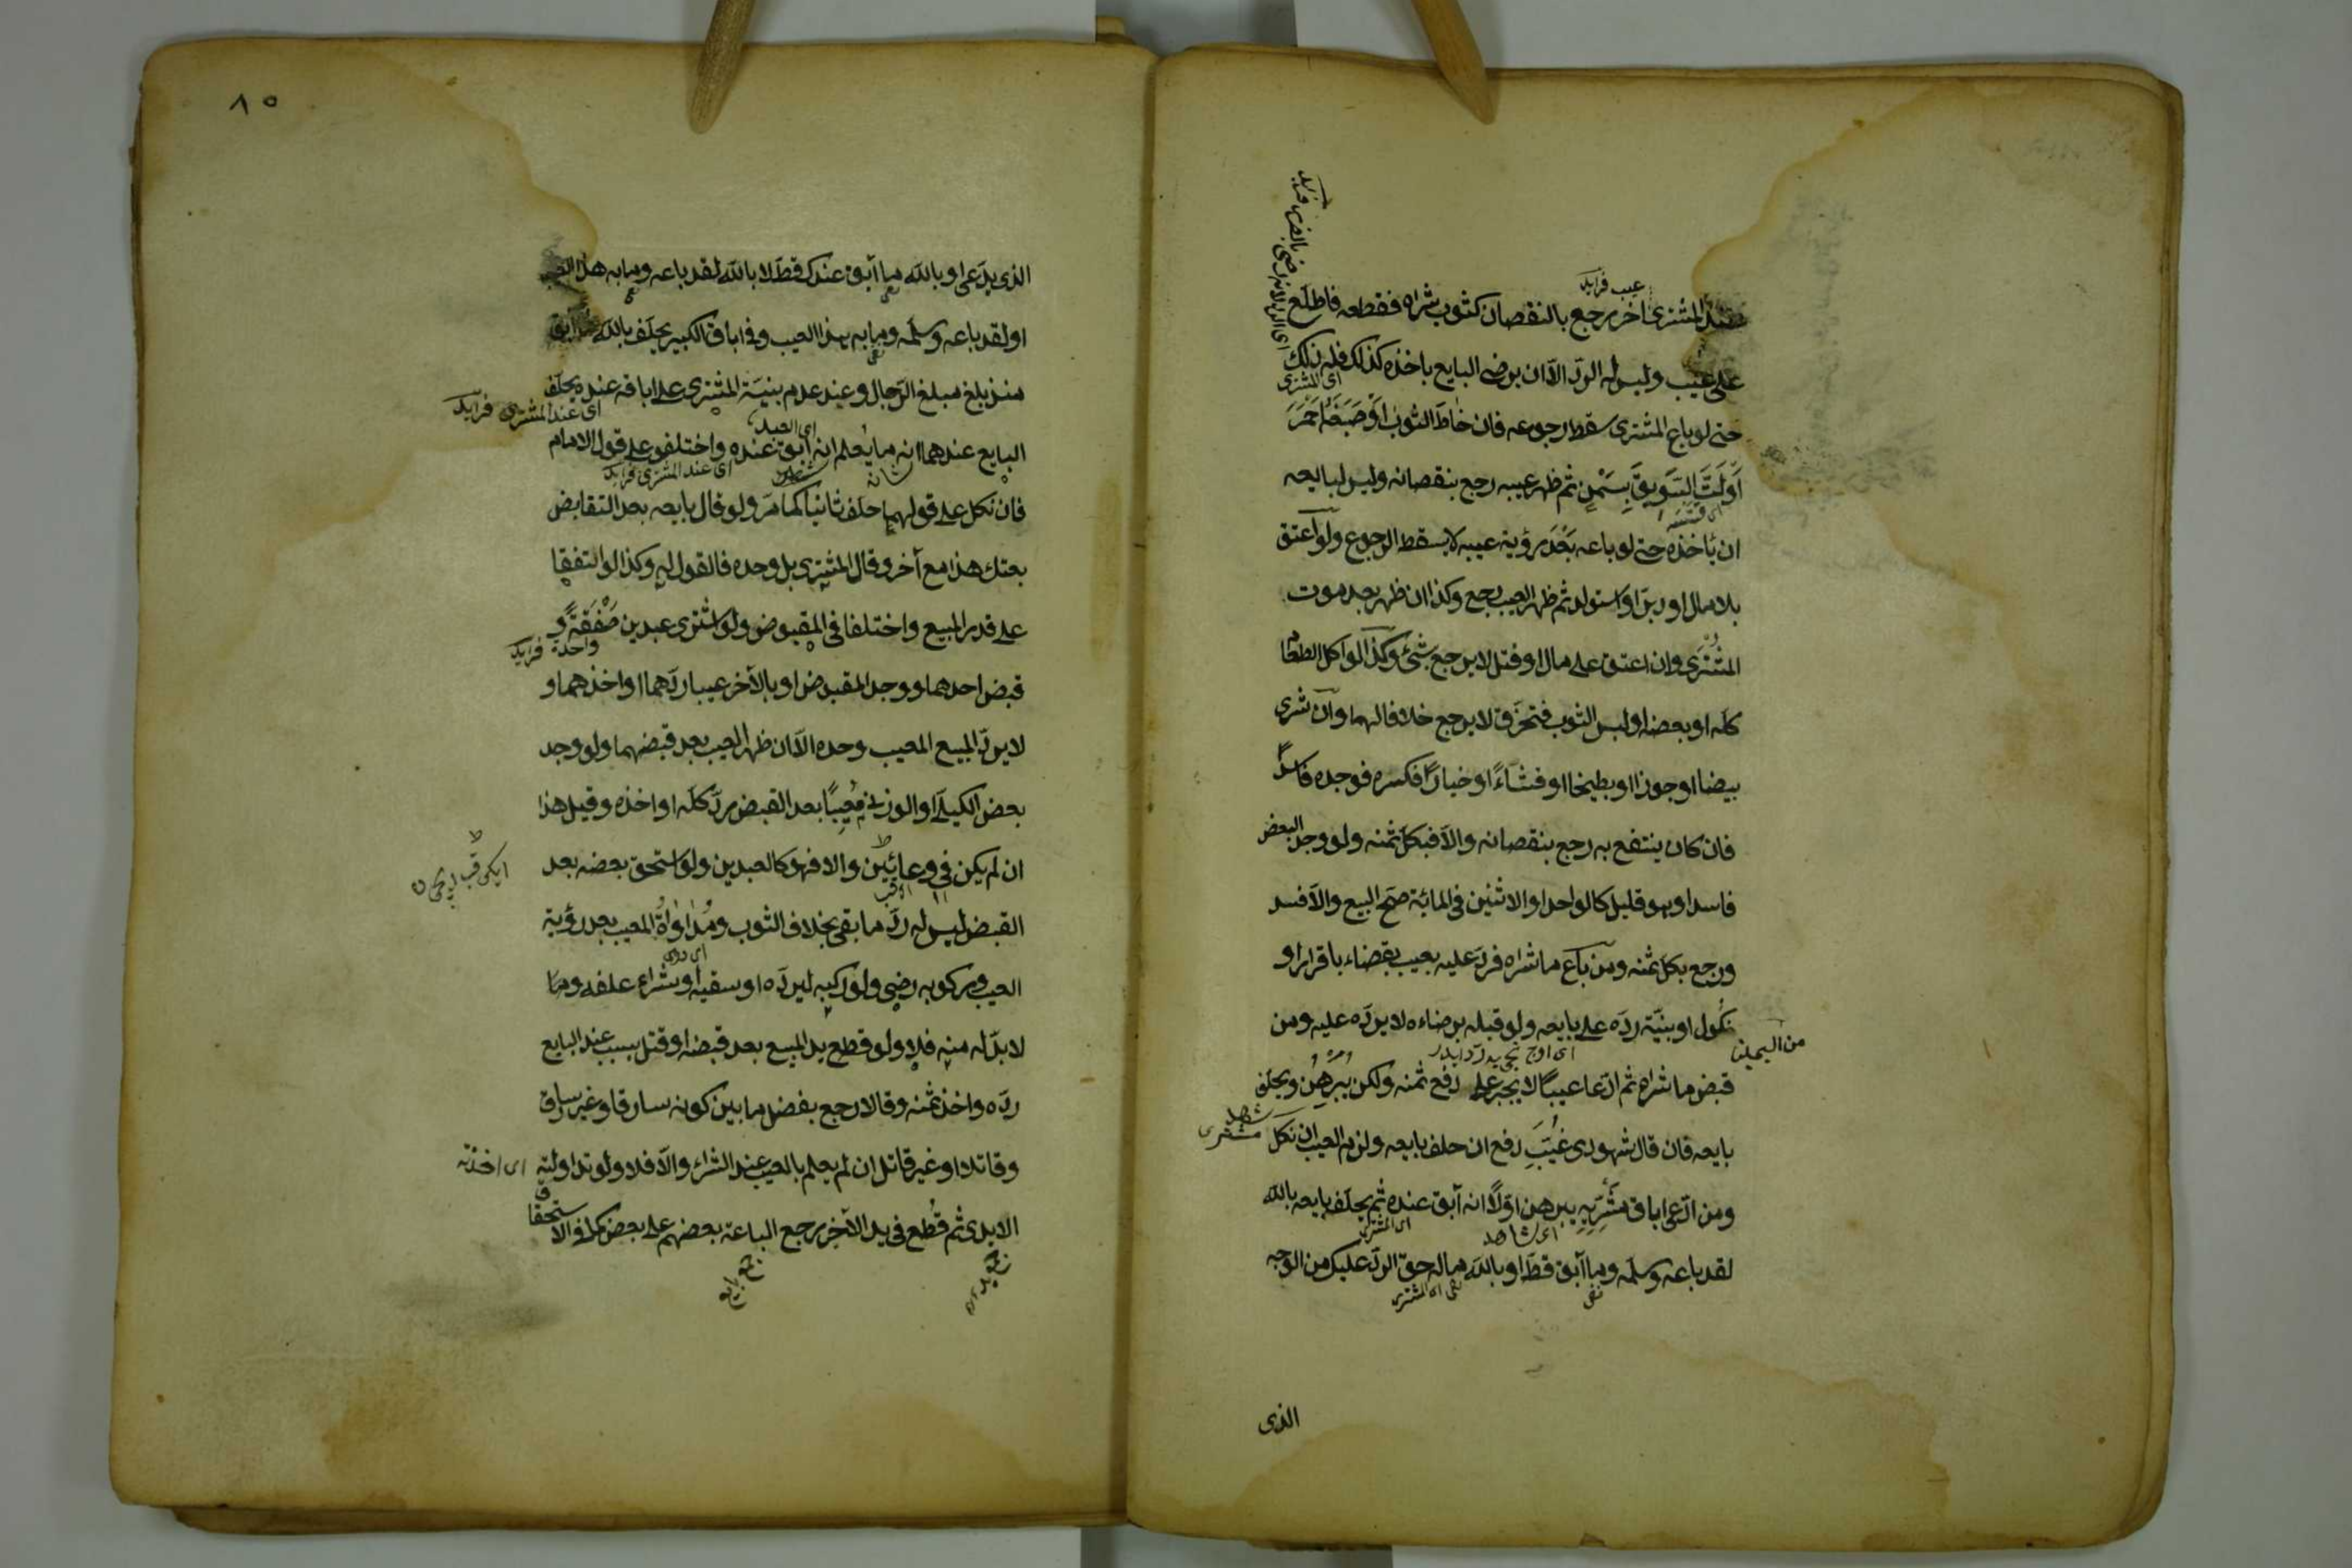 عيب فرايد
عند المشترى اخر رجع بالنقصان كثوب شراه فقطعه فاطلع
على عيب وليس له الردّ الاّ ان يرضى البايع باخذه كذلك فله ذلك
اى المشترى
حتى لو باع المشترى سقط رجوعه فان خاطَ الثوبَ اَوْ صَبَغَهُ اَحْمَرَ
اَوْ لَتَّ السَّوِيقَ بِسَمْنٍ ثم ظهر عيبه رجع بنقصانه وليس لبايعه
ان يأخذه حتى لو باعه بَعْدَ رؤية عيبه لا يسقط الرجوع ولو اعتق
بلا مال او دبّر او استولد ثم ظهر العيب رجع وكذا ان ظهر بعد موت
المُشْتَرَى وان اعتق على مال او قتل لا يرجع بشئ وكذا لو اكل الطعام
كلّه او بعضه او لبس الثوب فتخرّق لا يرجع خلافا لهما وان شرى
بيضا او جوزا او بطيخا او قثاءً او خيارًا فكسره فوجده فاسدًا
فان كان ينتفع به رجع بنقصانه والاّ فبكل ثمنه ولو وجد البعض
فاسدا وهو قليل كالواحد او الاثنين فى المائة صحّ البيع والاّ فسد
ورجع بكل ثمنه ومن باع ما شراه فردّ عليه بعيب بقضاء باقرار او
نكول او بيّنة ردّه على بايعه ولو قبله برضاءه لا يردّه عليه ومن
من اليمين
قبض ما شراه ثم ادّعا عيبًا لا يجبر على دفع ثمنه ولكن يُبَرْهِنُ ويحلّف
بايعه فان قال شهودى غُيَّبٌ دفع ان حلف بايعه ولزم العيب ان نكل
شاهد مشترى
ومن ادّعى اباق مشريّه يبرهن اوّلاً انه آبق عنده ثم يحلّف بايعه بالله
اى المشترى
لقد باعه وسلّمه وما آبق قطّ او بالله ماله حقّ الردّ عليك من الوجه
نفى
نفى اى المشترى
الذى
٨٥
الذى يدّعى او بالله ما آبق عندك قطّ لا بالله لقد باعه وما به هذا العيب
او لقد باعه وسلّمه وما به هذا العيب وفى اباق الكبير يحلّف بالله ما آبق
منذ بلغ مبلغ الرّجال وعند عدم بينة المشترى على اباقه عنده يحلّف
اى عند المشترى فرايد
اى العبد
البايع عندهما انه ما يعلم انه آبق عنده واختلفوا على قول الامام
اى عند المشترى فرايد
فان نكل على قولهما حلف ثانيا كما مرّ ولو قال بايعه بعد التقابض
بعتك هذا مع آخر وقال المشترى بل وحده فالقول له وكذا لو اتفقا
على قدر المبيع واختلفا فى المقبوض ولو اشترى عبدين صَفْقَةً و
واحدة فرايد
قبض احدهما ووجد المقبوض او بالآخر عيبا ردّهما او اخذهما و
لا يردّ المبيع المعيب وحده الاّ ان ظهر العيب بعد قبضهما ولو وجد
بعض الكيلى او الوزنى مَعِيبًا بعد القبض يردّ كلّه او اخذه وقيل هذا
ان لم يكن فى وعائين والا فهو كالعبدين ولو استحق بعضه بعد
القبض ليس له ردّ ما بقى بخلاف الثوب ومُدَاوَاةُ المعيب بعد رؤية
العيب وركوبه رضى ولو ركبه ليردّه او سقيه او شراء علفه وما
لا بدّ له منه فلا ولو قطع يد المبيع بعد قبضه او قتل بسبب عند البايع
ردّه واخذ ثمنه وقالا رجع بفضل ما بين كونه سارقا وغير سارق
وقاتلا او غير قاتل ان لم يعلم بالعيب عند الشراء والاّ فلا ولو تداولته
اى اخذته
الايدى ثم قُطع فى يد الآخر يرجع الباعة بعضهم على بعض كما فى الا
ستحقاق